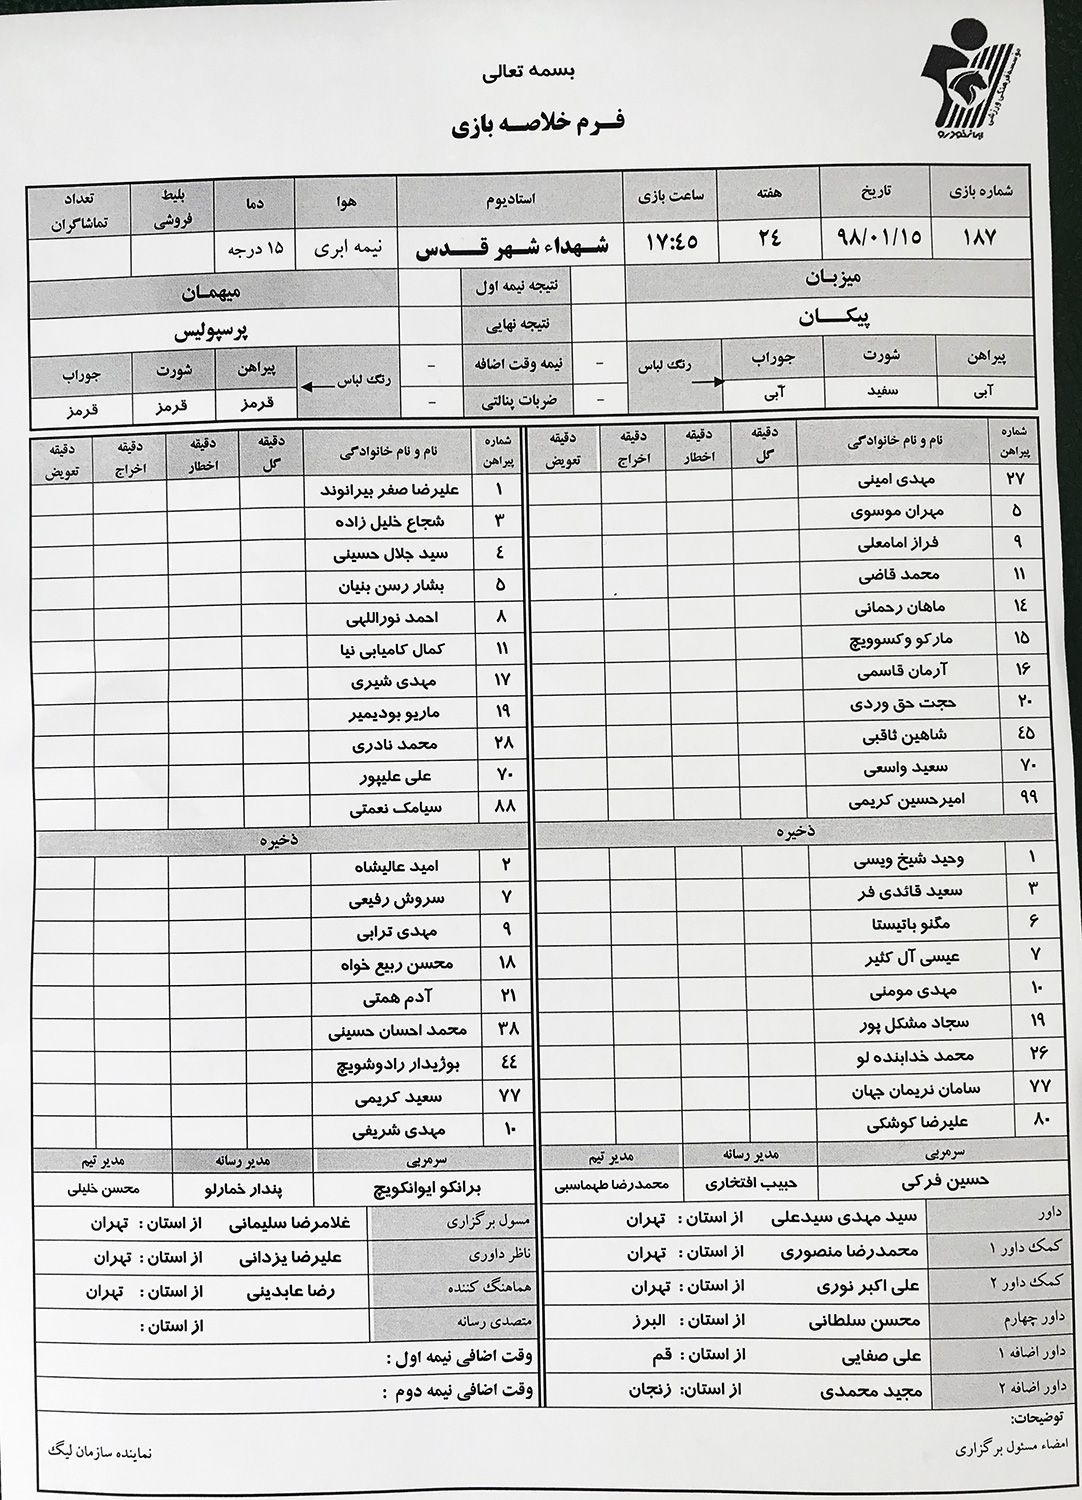 موسسه فرهنگی ورزشی
ایران‌خودرو
بسمه تعالی
فـرم خلاصـه بازی
شماره بازی تاریخ هفته ساعت بازی استادیوم هوا دما بلیط فروشی تعداد تماشاگران
۱۸۷ ۹۸/۰۱/۱۵ ۲۴ ۱۷:۴۵ شـهداء شهر قـدس نیمه ابری ۱۵ درجه
میزبان نتیجه نیمه اول میهمـان
پیکـــان نتیجه نهایی پرسپولیس
پیراهن شورت جوراب رنگ لباس - نیمه وقت اضافه - رنگ لباس پیراهن شورت جوراب
آبی سفید آبی - ضربات پنالتی - قرمز قرمز قرمز
شماره پیراهن نام و نام خانوادگی دقیقه گل دقیقه اخطار دقیقه اخراج دقیقه تعویض شماره پیراهن نام و نام خانوادگی دقیقه گل دقیقه اخطار دقیقه اخراج دقیقه تعویض
۲۷ مهدی امینی ۱ علیرضا صفر بیرانوند
۵ مهران موسوی ۳ شجاع خلیل زاده
۹ فراز امامعلی ۴ سید جلال حسینی
۱۱ محمد قاضی ۵ بشار رسن بنیان
۱۴ ماهان رحمانی ۸ احمد نوراللهی
۱۵ مارکو وکسوویچ ۱۱ کمال کامیابی نیا
۱۶ آرمان قاسمی ۱۷ مهدی شیری
۲۰ حجت حق وردی ۱۹ ماریو بودیمیر
۴۵ شاهین ثاقبی ۲۸ محمد نادری
۷۰ سعید واسعی ۷۰ علی علیپور
۹۹ امیرحسین کریمی ۸۸ سیامک نعمتی
ذخیره ذخیره
۱ وحید شیخ ویسی ۲ امید عالیشاه
۳ سعید قائدی فر ۷ سروش رفیعی
۶ مگنو باتیستا ۹ مهدی ترابی
۷ عیسی آل کثیر ۱۸ محسن ربیع خواه
۱۰ مهدی مومنی ۲۱ آدم همتی
۱۹ سجاد مشکل پور ۳۸ محمد احسان حسینی
۲۶ محمد خدابنده لو ۴۴ بوژیدار رادوشویچ
۷۷ سامان نریمان جهان ۷۷ سعید کریمی
۸۰ علیرضا کوشکی ۱۰ مهدی شریفی
سرمربی مدیر رسانه مدیر تیم سرمربی مدیر رسانه مدیر تیم
حسین فرکی حبیب افتخاری محمدرضا طهماسبی برانکو ایوانکویچ پندار خمارلو محسن خلیلی
داور سید مهدی سیدعلی از استان : تهران مسول برگزاری غلامرضا سلیمانی از استان : تهران
کمک داور ۱ محمدرضا منصوری از استان : تهران ناظر داوری علیرضا یزدانی از استان : تهران
کمک داور ۲ علی اکبر نوری از استان : تهران هماهنگ کننده رضا عابدینی از استان : تهران
داور چهارم محسن سلطانی از استان : البرز متصدی رسانه از استان :
داور اضافه ۱ علی صفایی از استان : قم وقت اضافی نیمه اول :
داور اضافه ۲ مجید محمدی از استان: زنجان وقت اضافی نیمه دوم :
توضیحات:
امضاء مسئول برگزاری نماینده سازمان لیگ